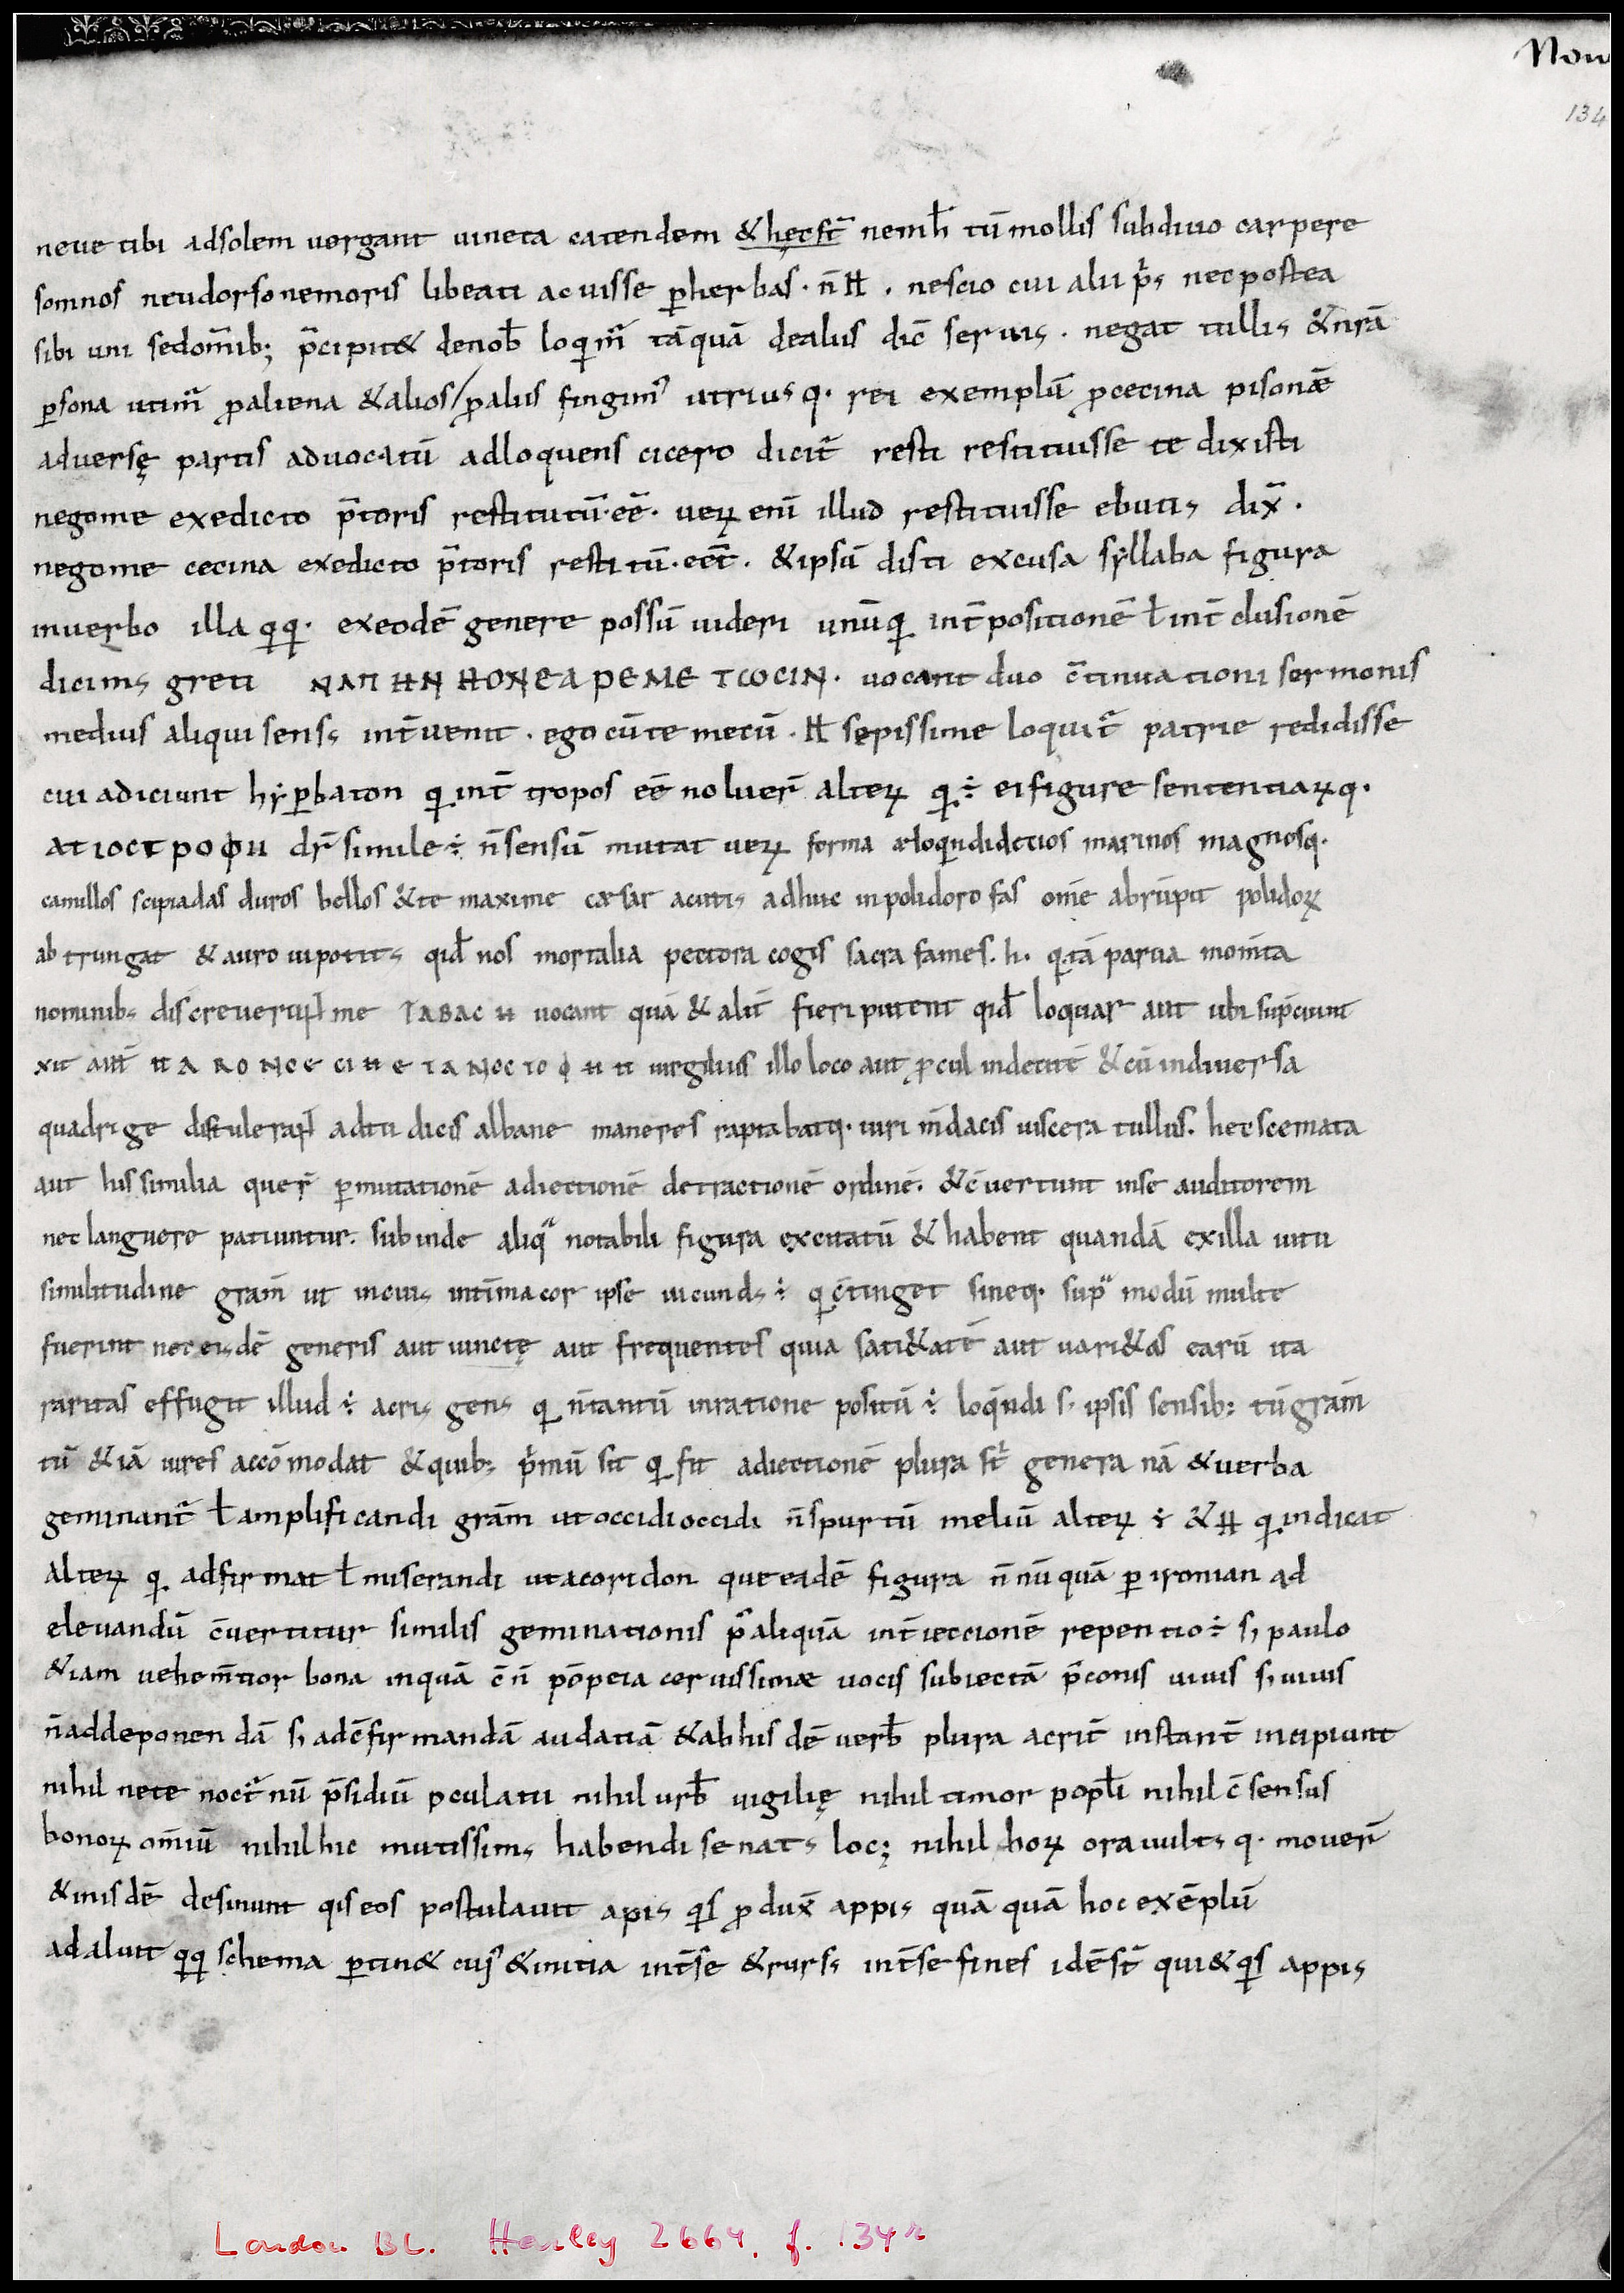 Non
134
neue tibi adsolem uergant uineta catendem &hęcst̄ nemh̄ tū mollis subdiuo carpere
somnos neudorsonemoris libeati acuisse ꝑherbas. n̄ H. nescio cui alii p̄s necpostea
sibi uni sedom̄ib; p̄cipit& denob̄ loqim̄ tāquā dealiis dic̄ seruis. negat tullis &nrā
ꝑsona utim̄ ꝓaliena &alios/ꝓaliis fingim᷒ utriusq. rei exemplū ꝓcecina pisonæ
aduersę partis aduocatū adloquens cicero dicit̄ resti restituisse te dixisti
negome exedicto p̄toris restitutū.eē. ueꝝ enī illud restituisse ebutis dix̄.
negome cecina exedicto p̄toris restitū.eēt. &ipsū disti excusa sẏllaba figura
inuerbo illa qq. exeodē genere possū uideri unūq int̄positionē ł int̄clusionē
dicims greci NAΠHN HONEAPEMETΤωCIN. uocant duo c̄tinuationi sermonis
medius aliqui senss int̄uenit. ego cūte mecū. H sępissime loquit̄ patrie redidisse
cui adiciunt hẏꝑbaton q int̄ tropos eē noluer̄ alteꝝ q ÷ eifigure sententiaꝝq.
ATIOCTPOΦH dr̄ simile ÷ n̄sensū mutat ueꝝ forma æloqndidctios marinos magnosq.
camillos scipiadas duros bellos &te maxime cæsar acutis adhuc inpolidoro fas om̄e abrūpit polidoꝝ
abtrungat & auro uipotits qid̄ nos mortalia pectora cogis sacra fames. h. q tā parua mom̄ta
nominibs discreuerūt me TABACH uocant quā & alit̄ fieri putent qid̄ loquar aut ubi sup̄ciunt
xit aut̄ ΠAPONOECINETANOCTOΦHN uirgilius illo loco aut ꝓcul indecitē & cū indiuersa
quadrige distulerat̄ adtu dicis albane maneres raptabatq. uiri m̄dacis uiscera tullus. hecscemata
aut hissimilia quer̄ ꝑmutationē adiectionē detractionē ordinē. &c̄uertunt inse auditorem
nec languere patiuntur. subinde aliqͣ notabili figura excitatū & habent quandā exilla uitii
similitudine gram̄ ut incuis intīmacor ipse iucunds ÷ q c̄tinget sineq. supͣ modū multe
fuerint nec eisdē generis aut iunctę aut frequentes quia sati&atē aut uari&as earū ita
raritas effugit illud ÷ acris gens q n̄tantū inratione positū ÷ loqn̄di s. ipsis sensib: tūgram̄
tū &iā uires accōmodat &quib: p̄mū sit q fit adiectionē plura st̄ genera nā &uerba
geminant̄ ł amplificandi grām utoccidioccidi n̄spurtū meliū alteꝝ ÷ & H q indicat
alteꝝ q adfirmat ł miserandi utacoridon queeadē figura n̄nūquā ꝑ ironian ad
eleuandū c̄uertitur similis geminationis p᷒aliquā int̄ieccionē repentio ÷ s, paulo
&iam uehem̄tior bona inquā c̄n̄ pōpeia ceruissimæ uocis subiectā p̄conis uiuis s, uiuis
n̄addeponendā s, adc̄firmandā audatiā &abhis dē uerb̄ plura acrit̄ instant̄ incipiunt
nihil nete noct̄nū p̄sidiū pculatii nihil urb̄ uigilię nihil timor popl̄i nihil c̄sensus
bonoꝝ om̄iū nihil hic mutissims habendi senats loc; nihil hoꝝ orauults q. mouer̄
&inisdē desinunt qis eos postulauit apis qis ꝓdux̄ appis quāquā hoc exēplū
adaluit qq schema ꝑtin& cuj᷒ &initia int̄sē &rurss int̄sefines idēst̄ qui&qis appis
London BL. Harley 2664, f. 134r